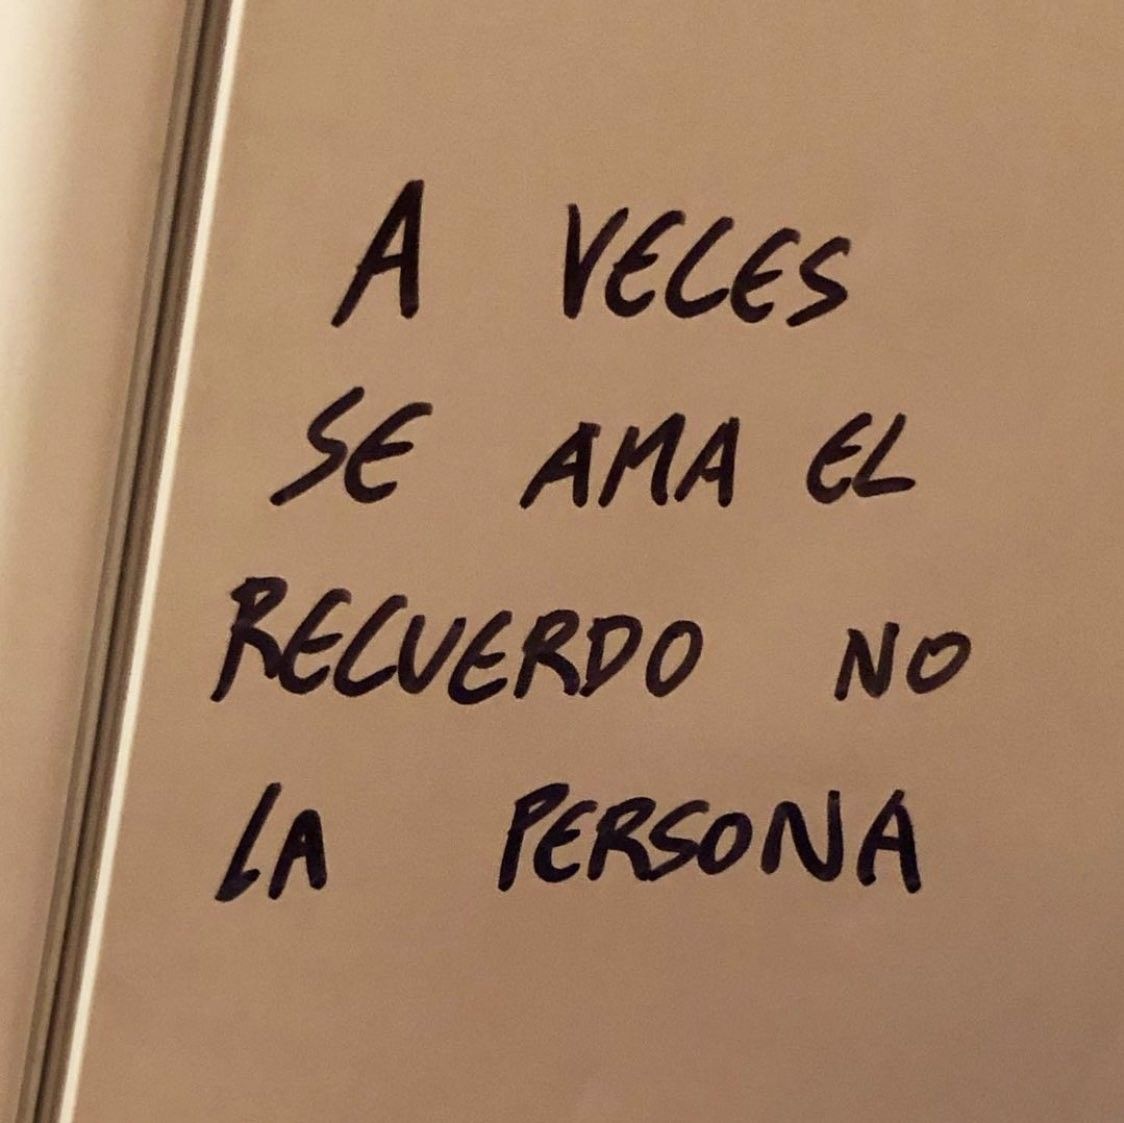 A VECES
SE AMA EL
RECUERDO NO
LA PERSONA